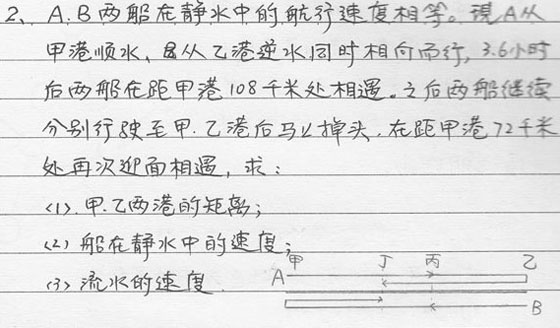 2、A.B两船在静水中的航行速度相等。现A从
甲港顺水、B从乙港逆水同时相向而行，3.6小时
后两船在距甲港108千米处相遇。之后两船继续
分别行驶至甲.乙港后马上掉头，在距甲港72千米
处再次迎面相遇，求：
(1).甲.乙两港的距离；
(2) 船在静水中的速度；
(3) 流水的速度.
甲 丁 丙 乙
A
B